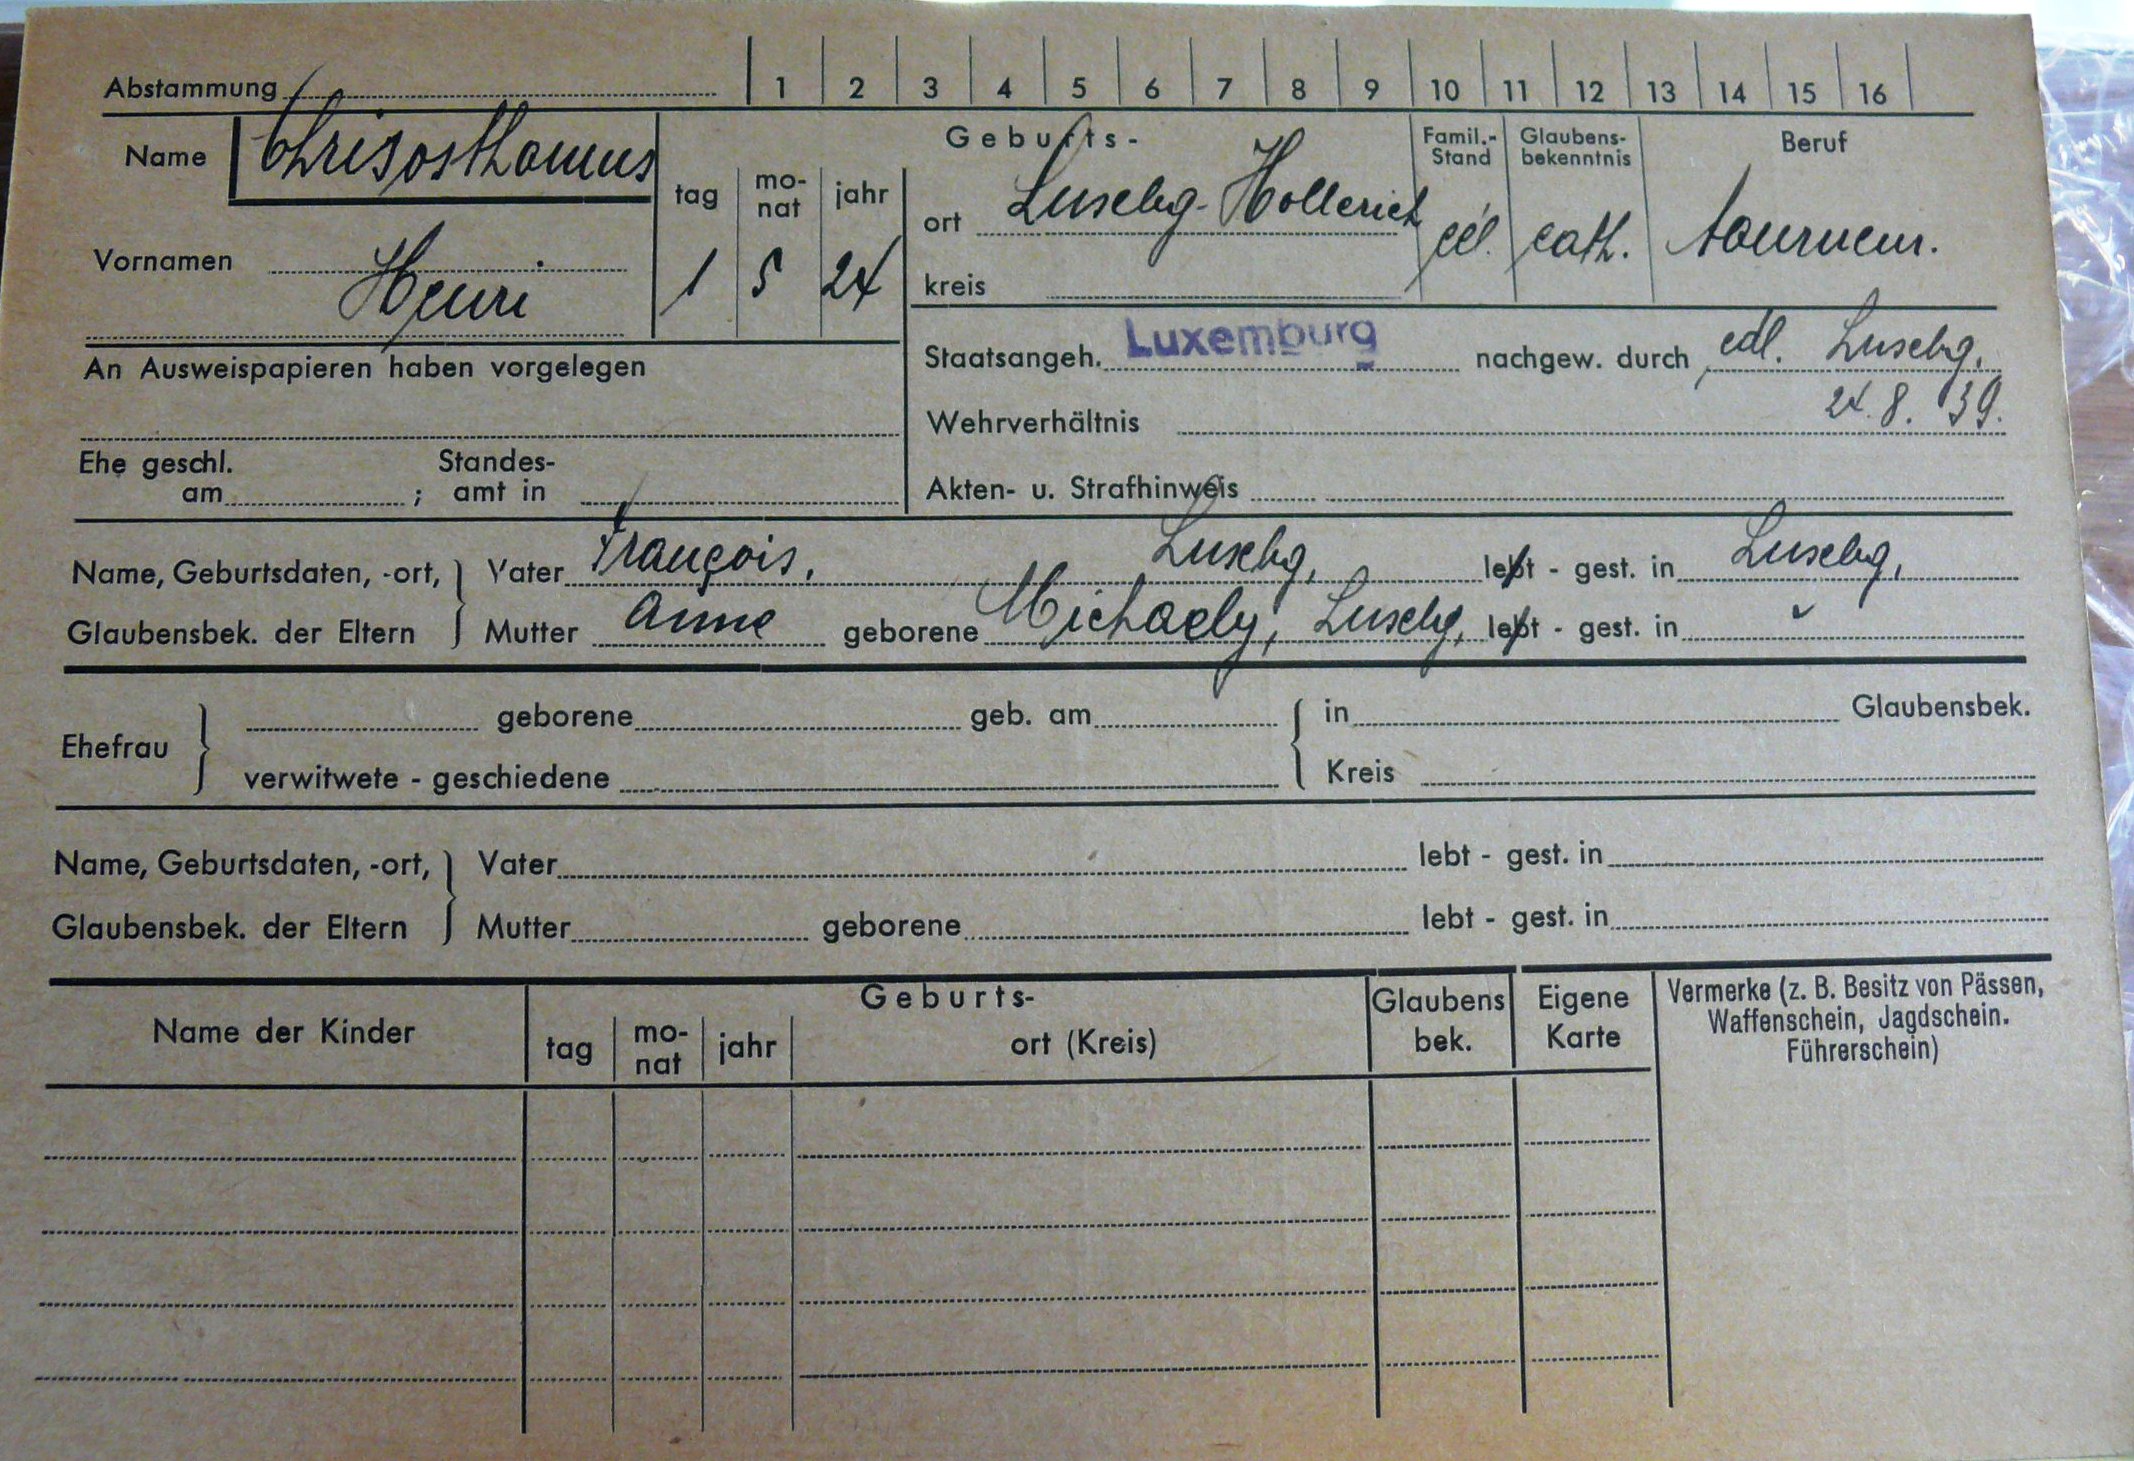 Abstammung 1 2 3 4 5 6 7 8 9 10 11 12 13 14 15 16
Name Chrisosthomus
Vornamen Henri
Geburts-
tag mo-nat jahr
1 5 24
ort Luxebg-Hollerich
kreis
Famil.-Stand
cél.
Glaubens-bekenntnis
cath.
Beruf
tourneur.
An Ausweispapieren haben vorgelegen
Staatsangeh. Luxemburg nachgew. durch cdl. Luxebg.
24.8.39.
Wehrverhältnis
Ehe geschl. am ; Standes-amt in
Akten- u. Strafhinweis
Name, Geburtsdaten, -ort, Vater François, Luxebg, lebt - gest. in Luxebg,
Glaubensbek. der Eltern Mutter Anne geborene Michaely, Luxebg, lebt - gest. in
Ehefrau geborene geb. am in Glaubensbek.
verwitwete - geschiedene Kreis
Name, Geburtsdaten, -ort, Vater lebt - gest. in
Glaubensbek. der Eltern Mutter geborene lebt - gest. in
Name der Kinder
Geburts-
tag mo-nat jahr ort (Kreis)
Glaubens bek.
Eigene Karte
Vermerke (z. B. Besitz von Pässen,
Waffenschein, Jagdschein.
Führerschein)